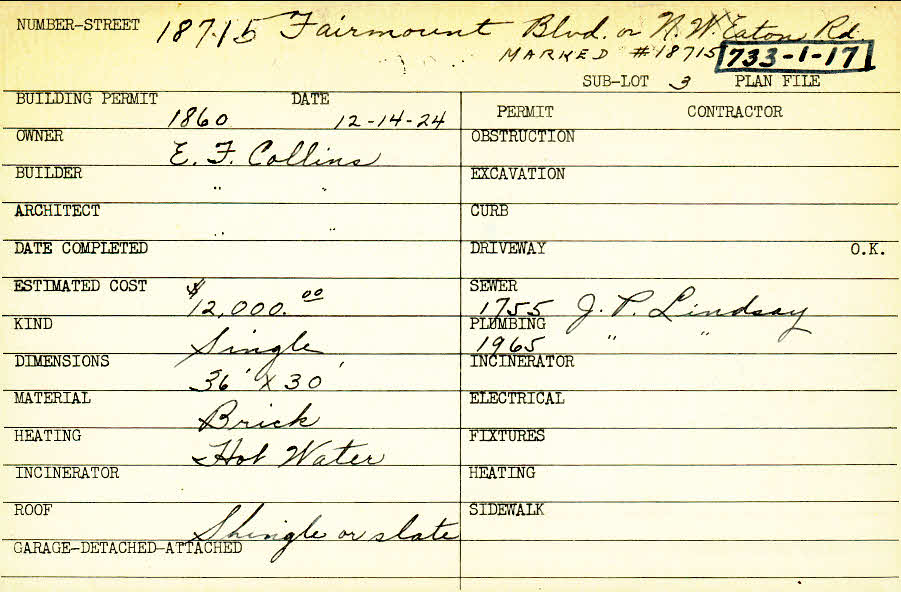 NUMBER-STREET 18715 Fairmount Blvd. or N.W. Eaton Rd.
MARKED #18715 733-1-17
SUB-LOT 3 PLAN FILE
BUILDING PERMIT DATE
1860 12-14-24
OWNER
E. F. Collins
BUILDER
" "
ARCHITECT
" "
DATE COMPLETED
ESTIMATED COST
$12,000.00
KIND
Single
DIMENSIONS
36' X 30'
MATERIAL
Brick
HEATING
Hot Water
INCINERATOR
ROOF
Shingle or slate
GARAGE-DETACHED-ATTACHED
PERMIT CONTRACTOR
OBSTRUCTION
EXCAVATION
CURB
DRIVEWAY O.K.
SEWER
1755 J. P. Lindsay
PLUMBING
1965 " "
INCINERATOR
ELECTRICAL
FIXTURES
HEATING
SIDEWALK